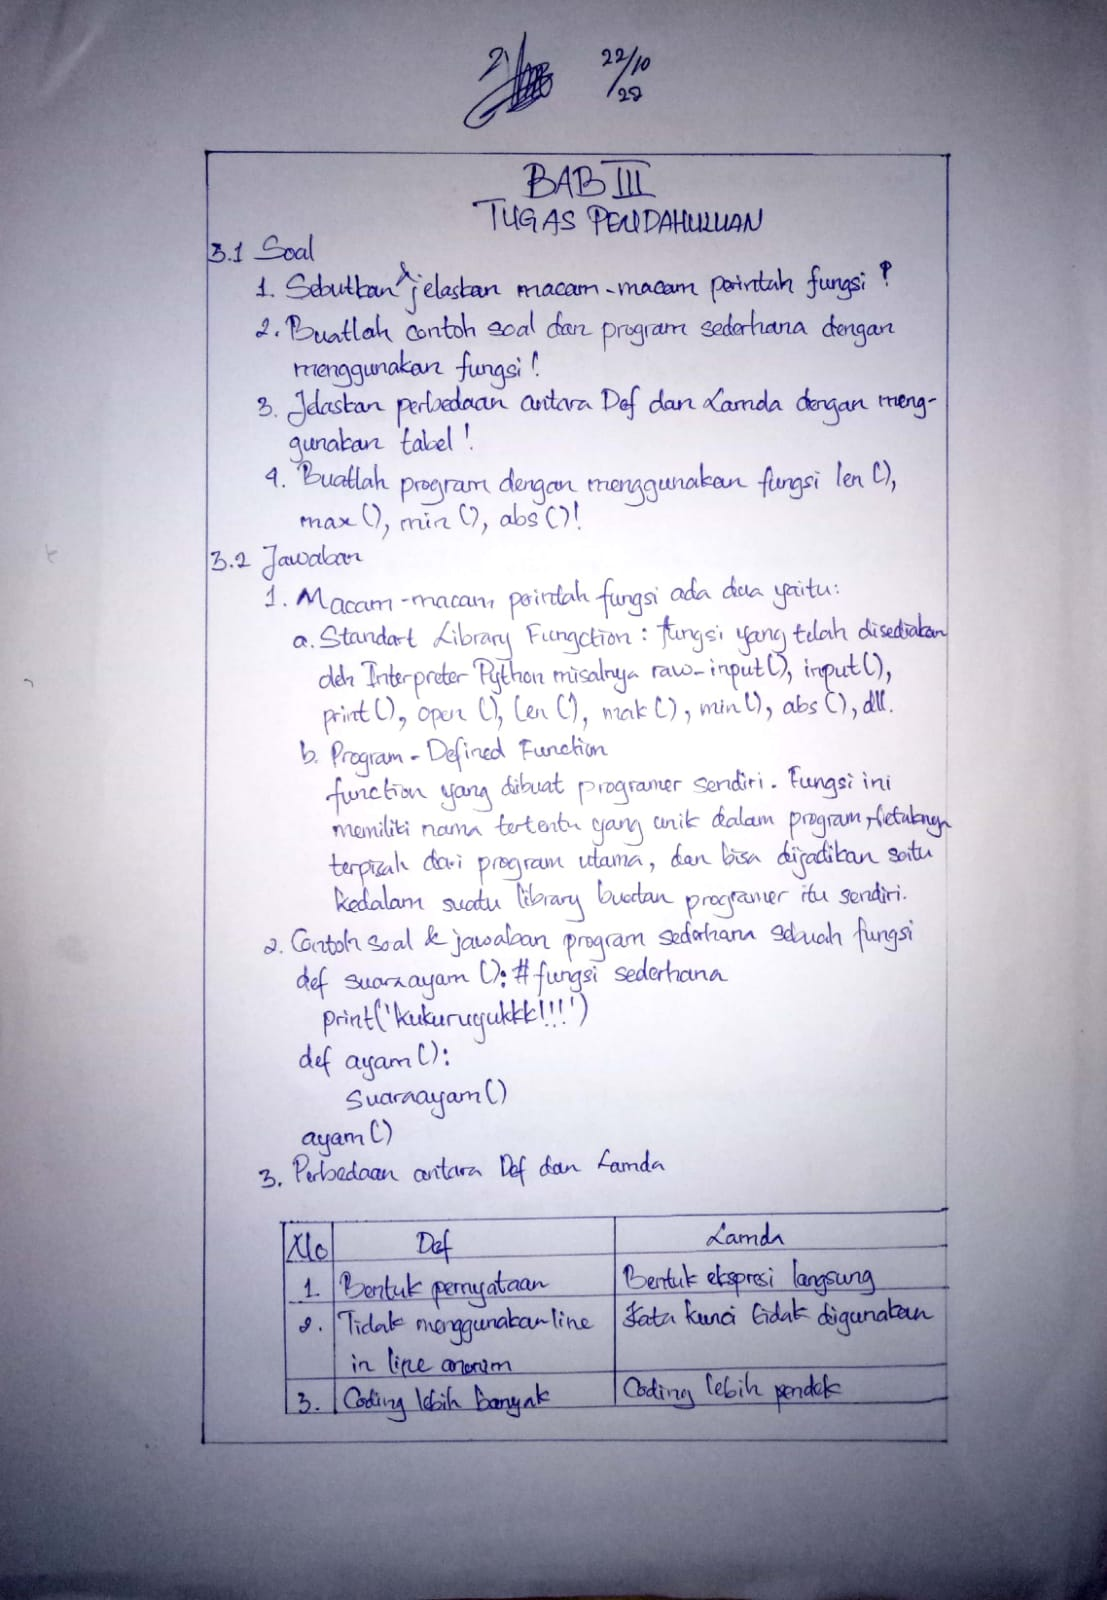 22/10
BAB III
TUGAS PENDAHULUAN
3.1 Soal
1. Sebutkan & jelaskan macam-macam perintah fungsi!
2. Buatlah contoh soal dan program sederhana dengan
menggunakan fungsi!
3. Jelaskan perbedaan antara Def dan Lamda dengan meng-
gunakan tabel!
4. Buatlah program dengan menggunakan fungsi len (),
max (), min (), abs ()!
3.2 Jawaban
1. Macam-macam perintah fungsi ada dua yaitu:
a. Standart Library Fungction : fungsi yang telah disediakan
oleh Interpreter Python misalnya raw-input (), input (),
print (), open (), len (), mak (), min (), abs (), dll.
b. Program-Defined Function
function yang dibuat programer sendiri. Fungsi ini
memiliki nama tertentu yang unik dalam program, letaknya
terpisah dari program utama, dan bisa dijadikan satu
kedalam suatu library buatan programer itu sendiri.
2. Contoh soal & jawaban program sederhana sebuah fungsi
def suaraayam (): # fungsi sederhana
print('kukurugukkk!!!')
def ayam ():
Suaraayam ()
ayam ()
3. Perbedaan antara Def dan Lamda
No Def Lamda
1. Bentuk pernyataan Bentuk ekspresi langsung
2. Tidak menggunakan line Kata kunci tidak digunakan
in line anonim
3. Coding lebih banyak Coding lebih pendek